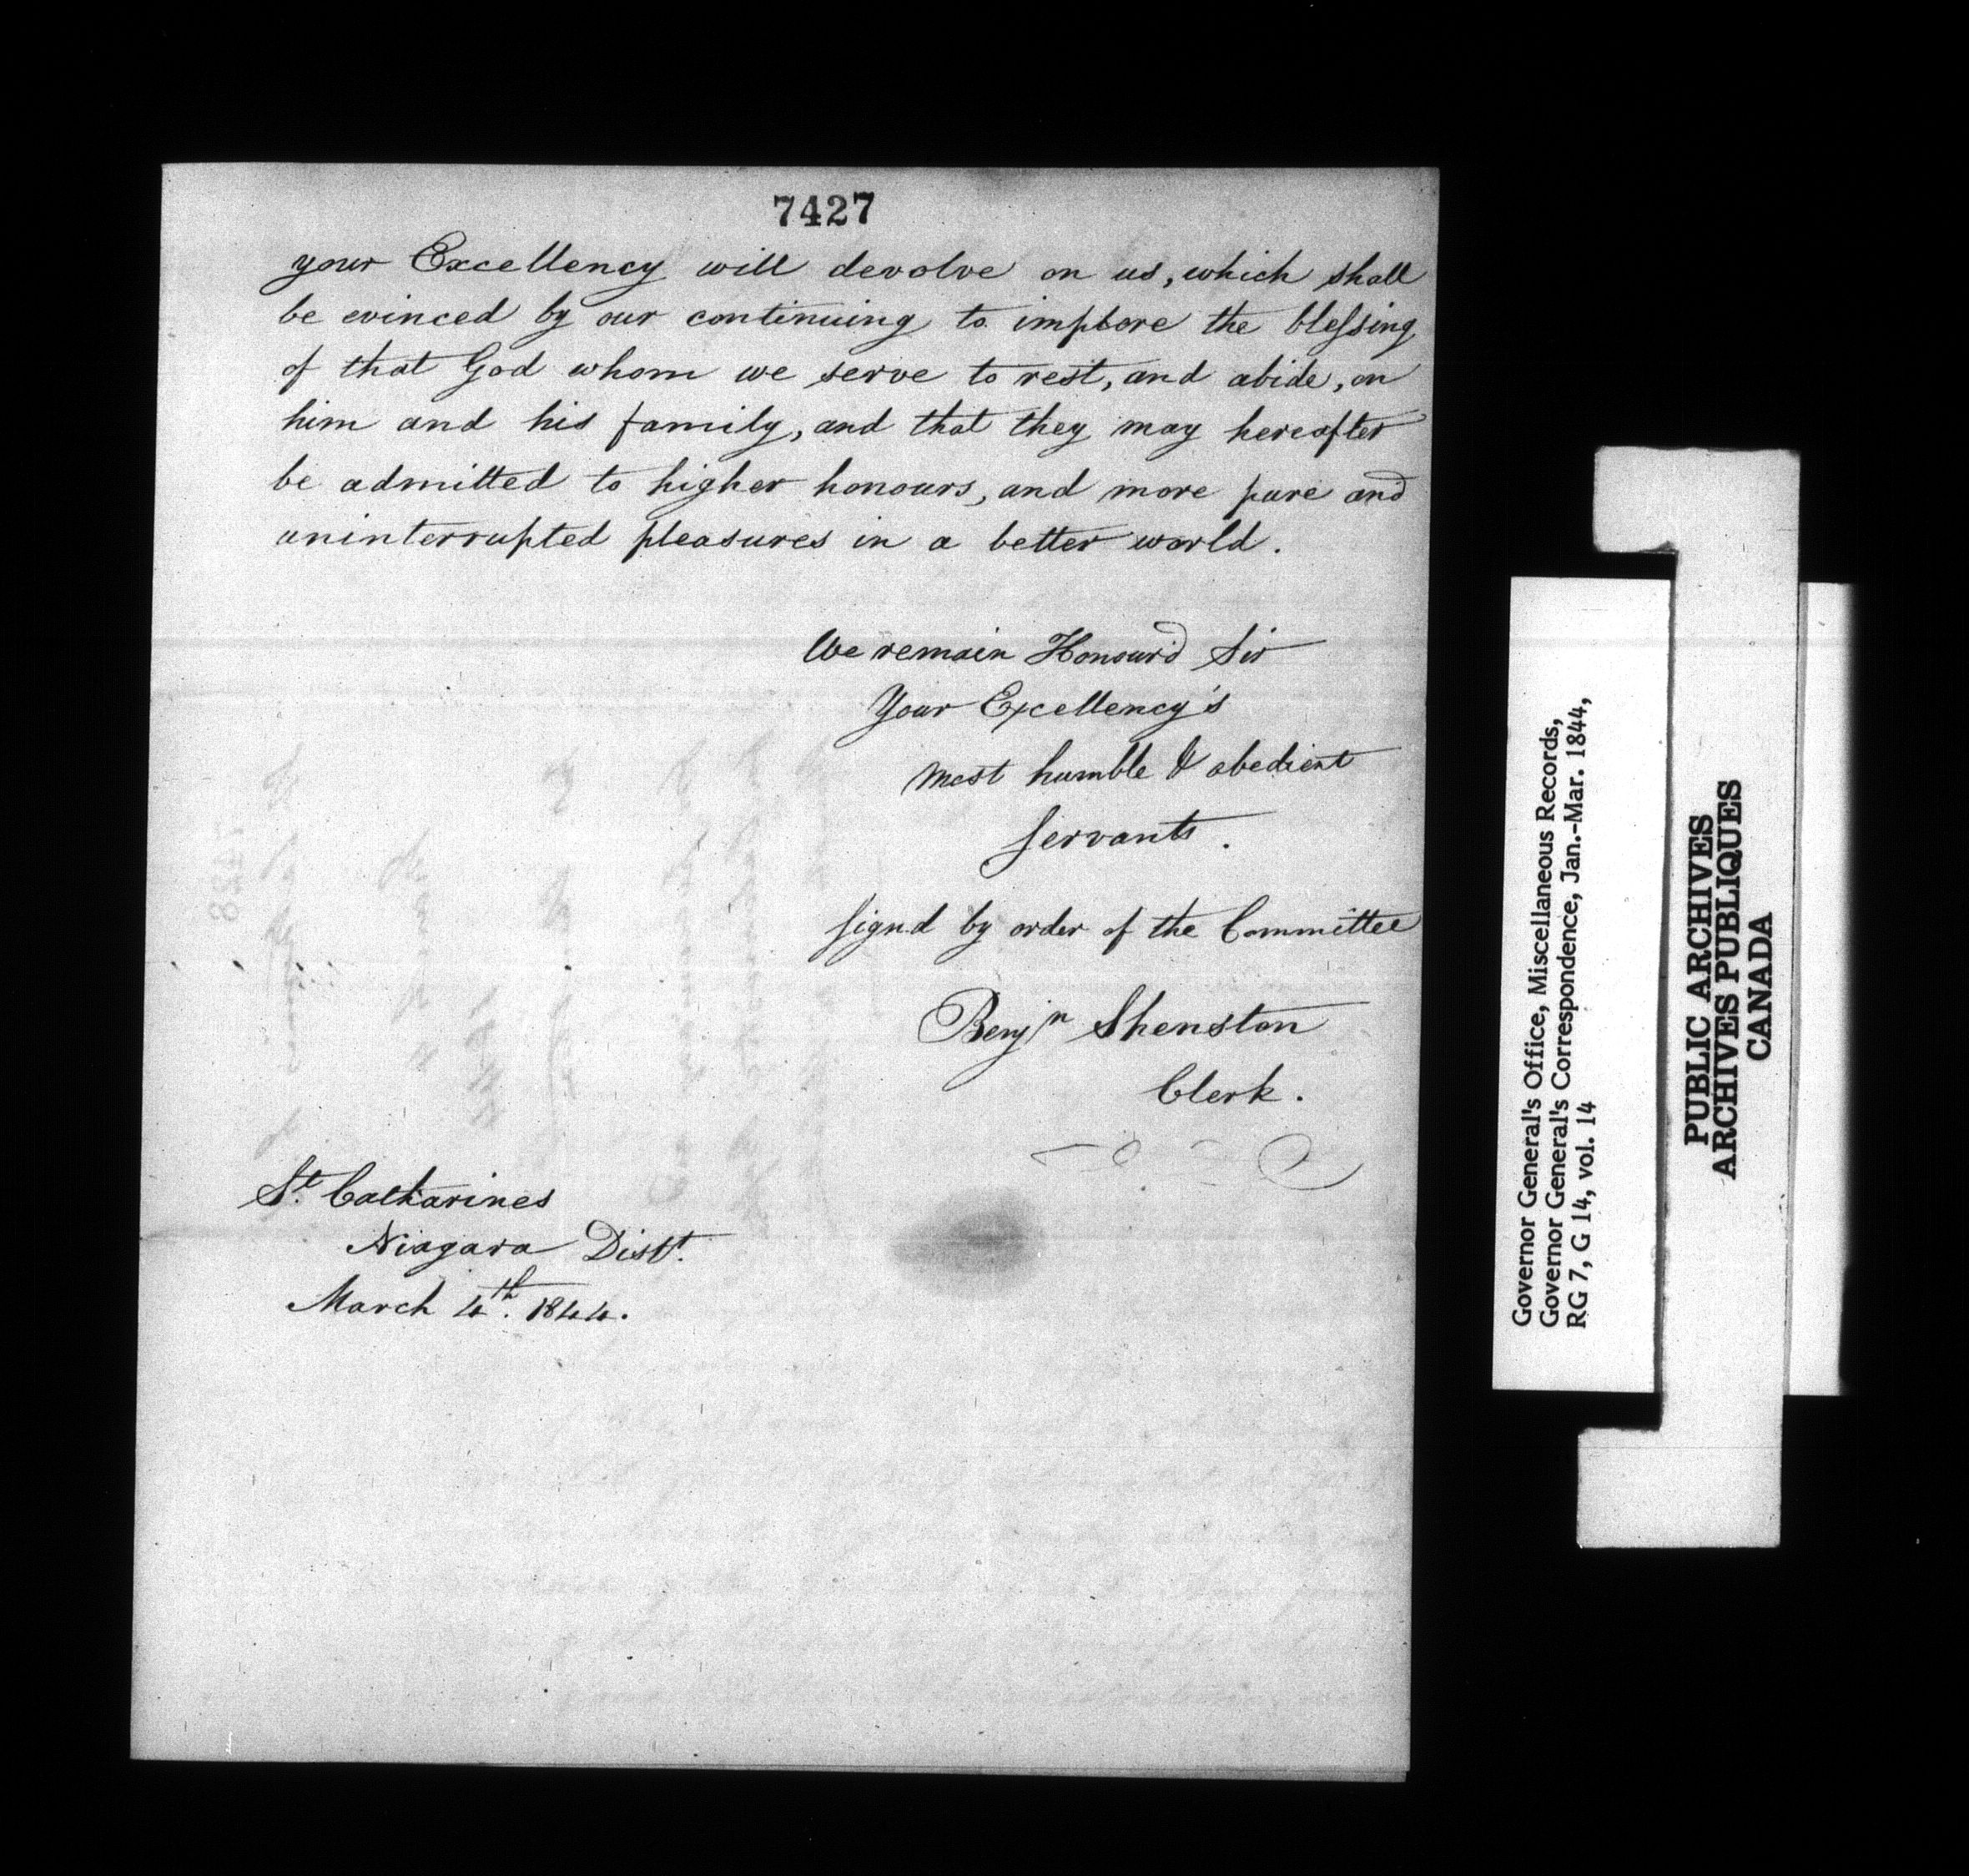 7427
your Excellency will devolve on us, which shall
be evinced by our continuing to implore the blessing
of that God whom we serve to rest, and abide, on
him and his family, and that they may hereafter
be admitted to higher honours, and more pure and
uninterrupted pleasures in a better world.
We remain Honour'd Sir
Your Excellency's
most humble & obedient
Servants.
Signd by order of the Committee
Benjn Shenston
Clerk.
St. Catharines
Niagara Distt.
March 4th. 1844.
Governor General's Office, Miscellaneous Records,
Governor General's Correspondence, Jan.-Mar. 1844,
RG 7, G 14, vol. 14
PUBLIC ARCHIVES
ARCHIVES PUBLIQUES
CANADA